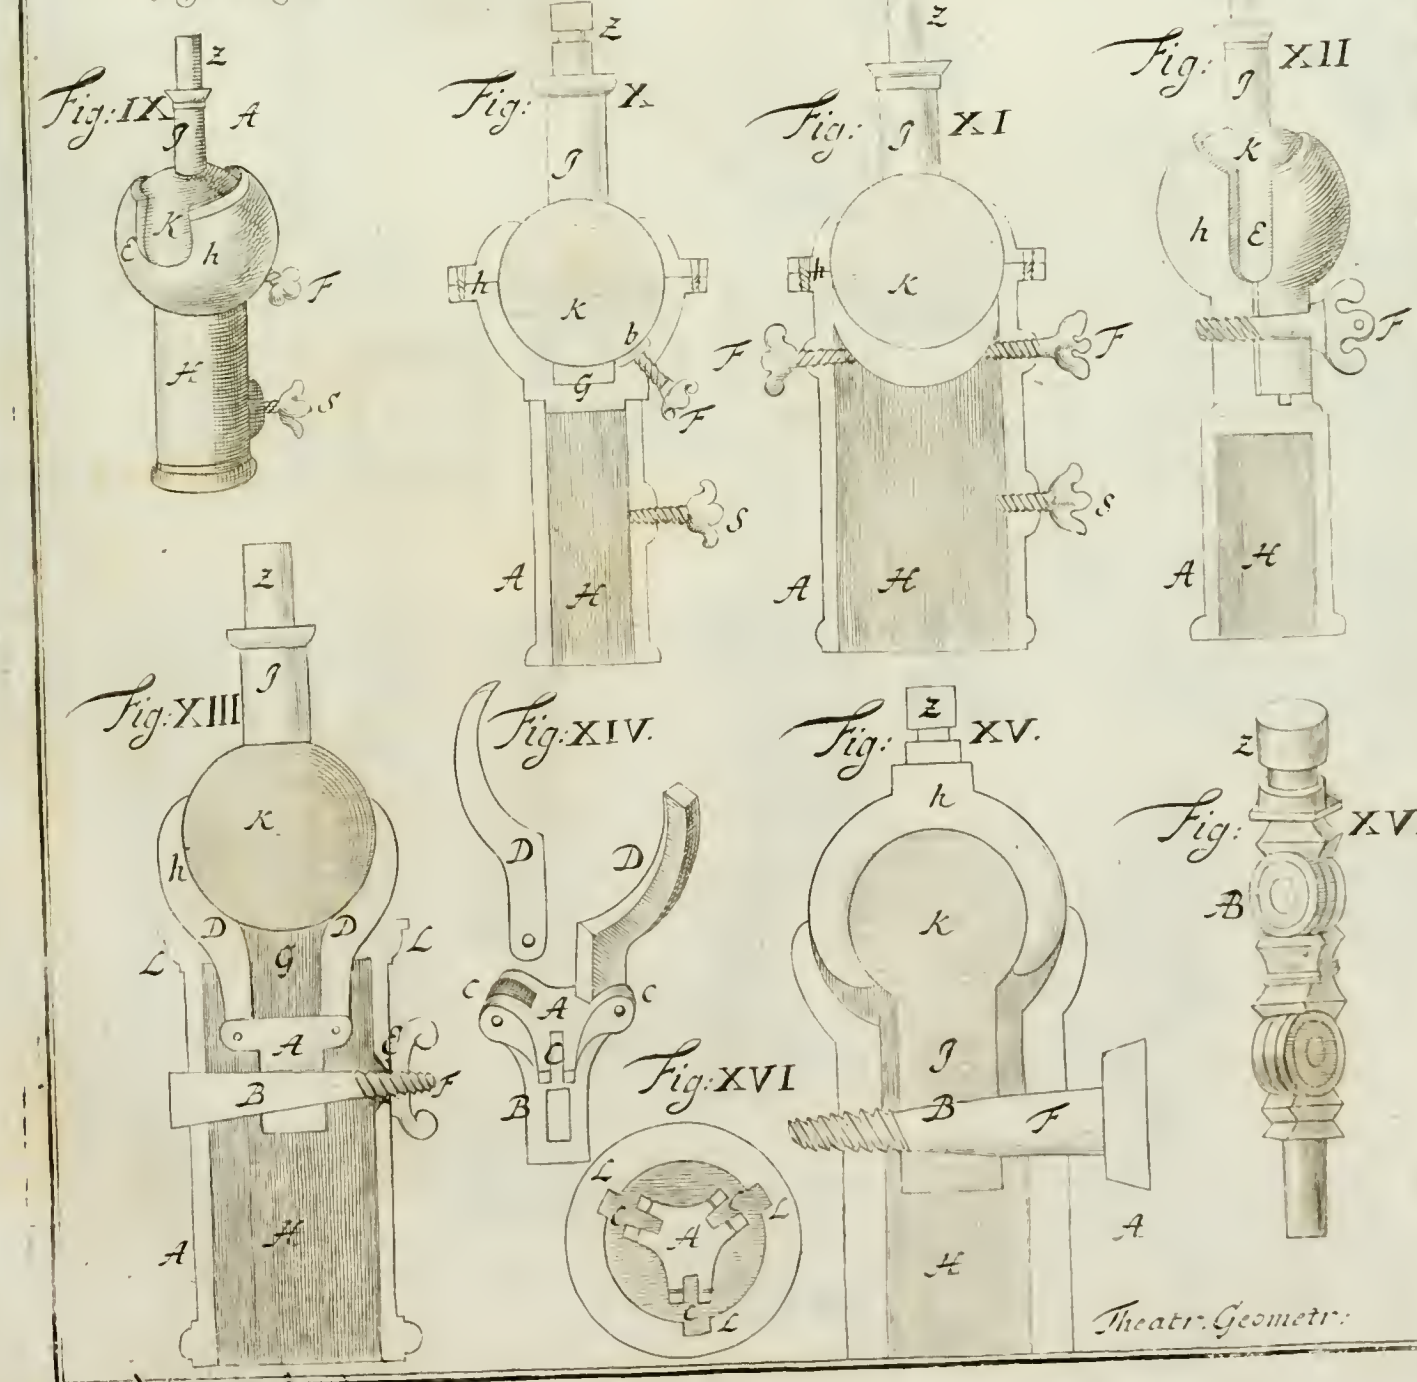 Fig: IX
z
J
A
K
E
h
F
H
S
Fig: X.
z
J
h
K
b
G
F
S
A
H
Fig: XI
z
J
h
K
F
F
S
A
H
Fig: XII
J
K
h
E
F
A
H
Fig: XIII
z
J
K
h
D
D
G
L
L
A
E
B
F
A
H
Fig: XIV.
D
D
C
C
A
C
B
Fig: XVI
L
L
C
C
A
C
L
Fig: XV.
z
h
K
J
B
F
A
H
Fig: XV
z
B
Theatr. Geometr: